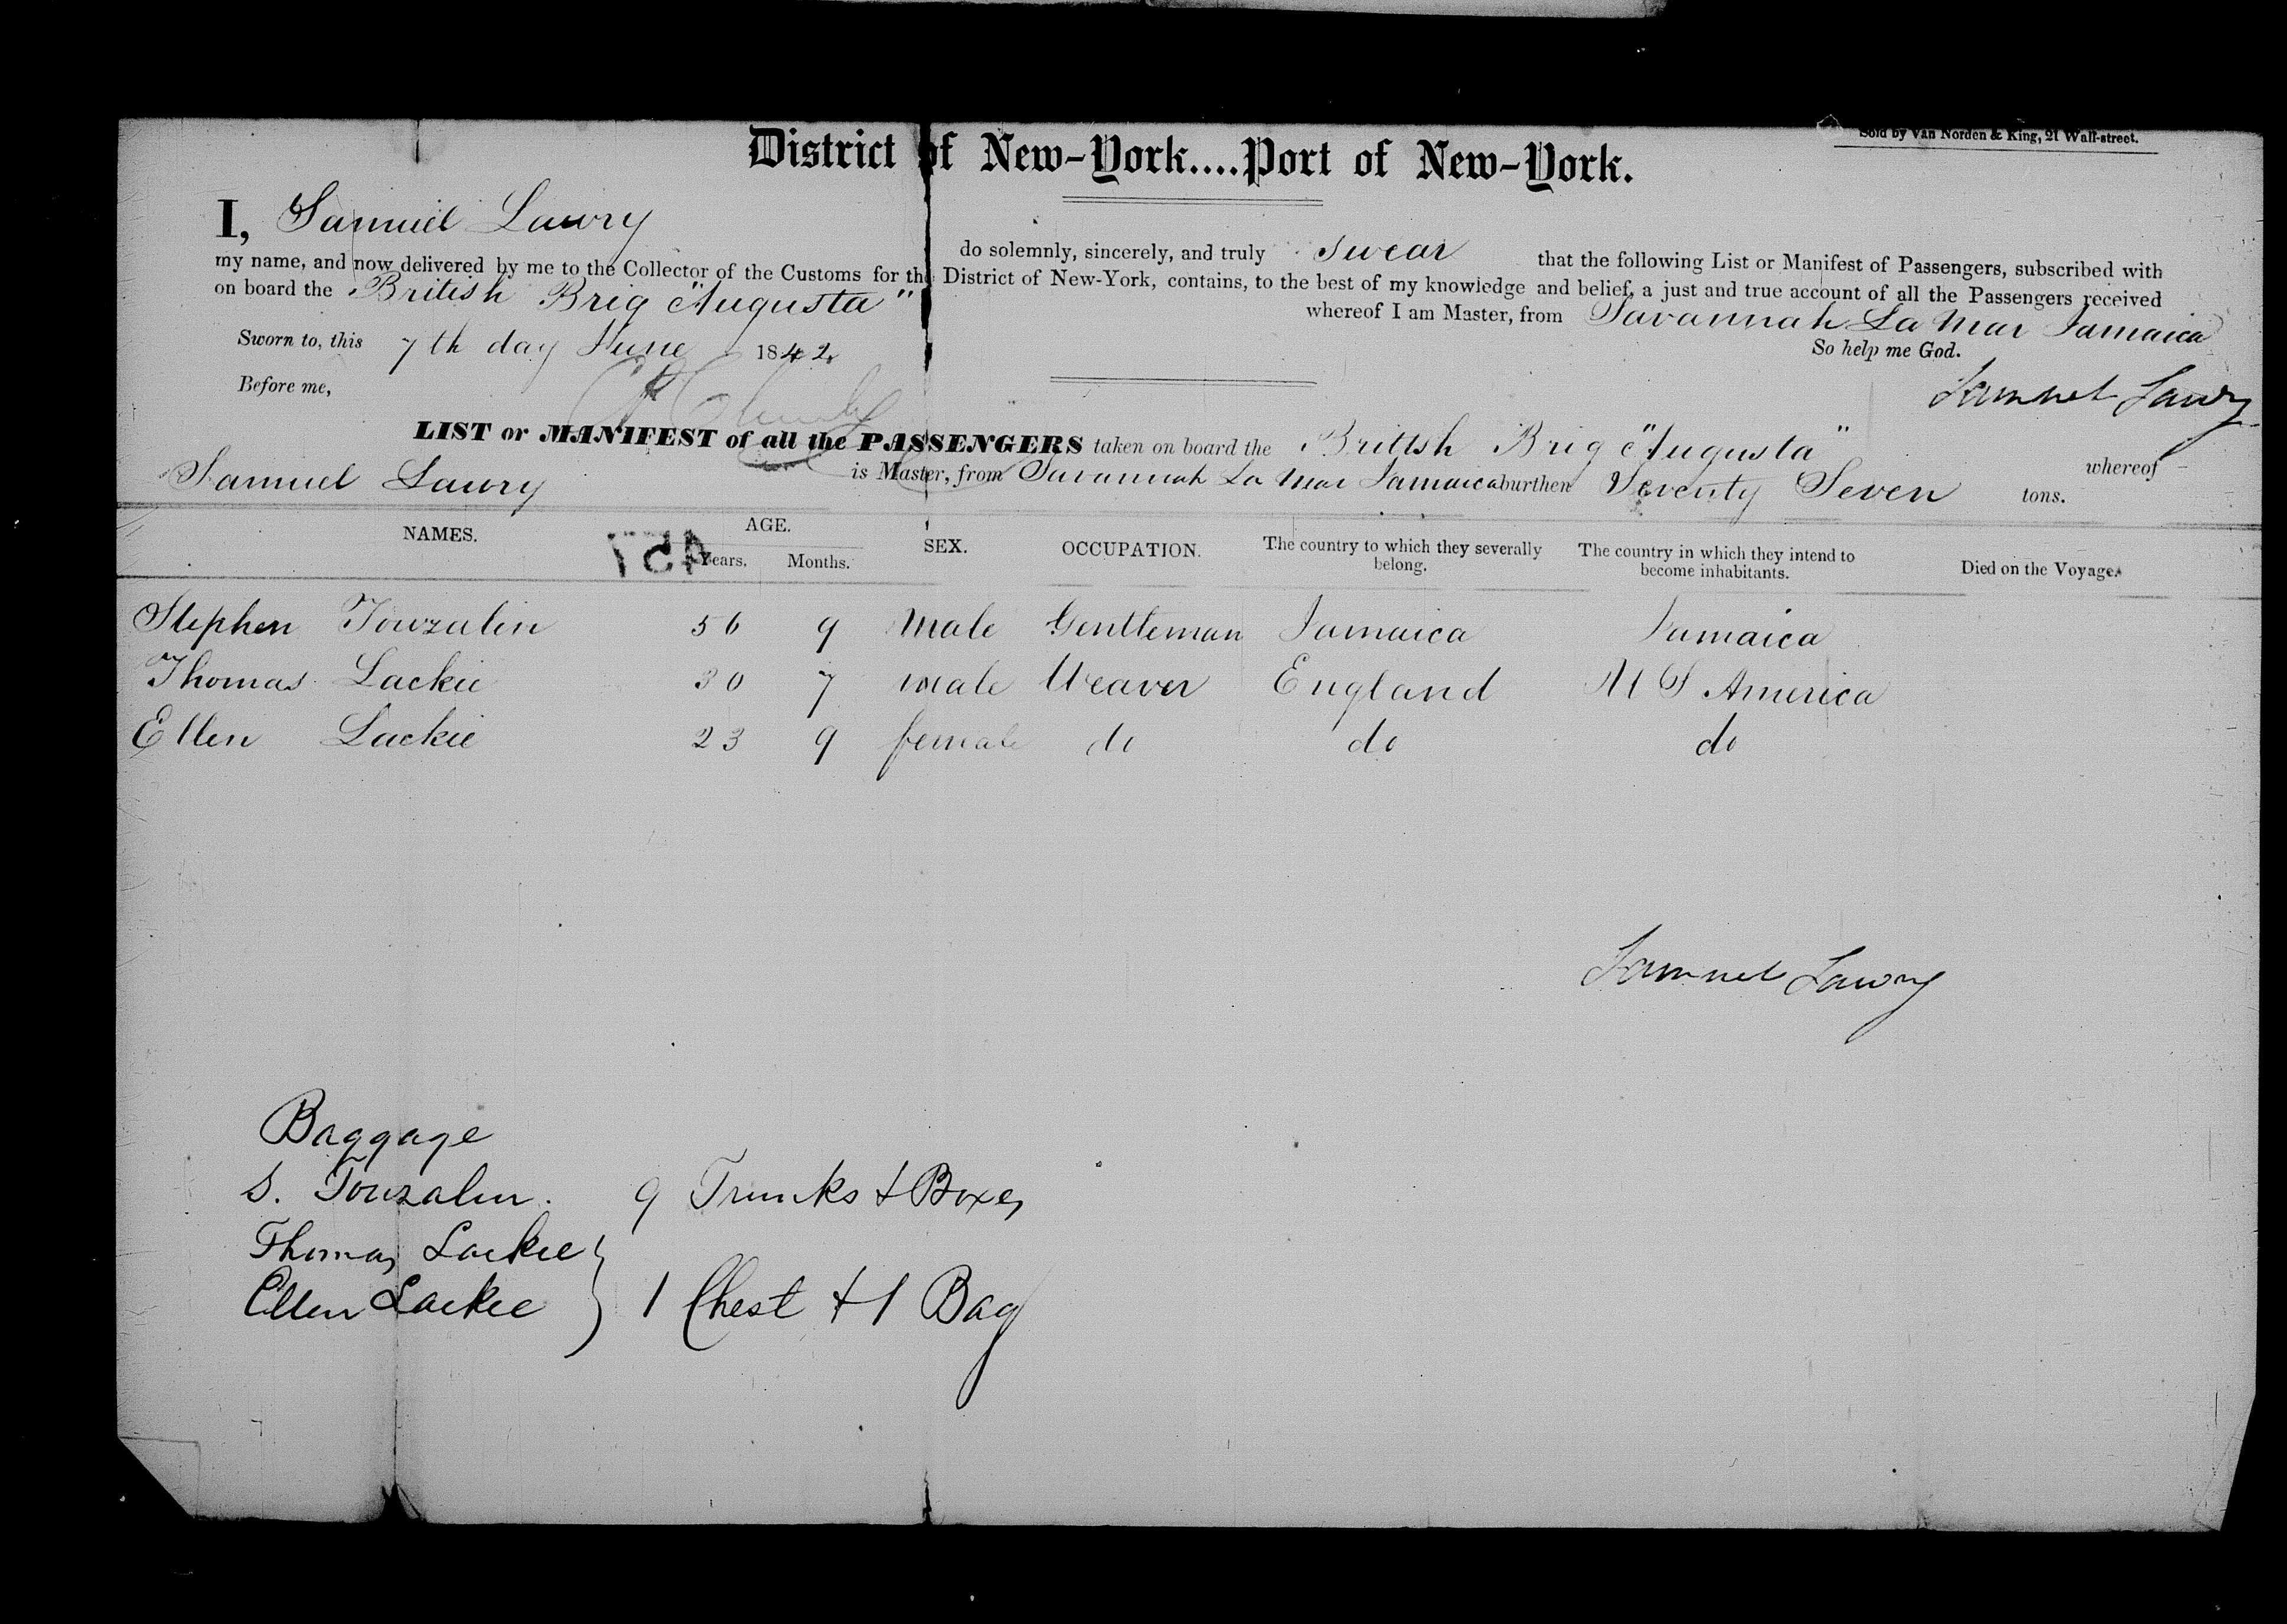 Sold by Van Norden & King, 21 Wall-street.
District of New-York....Port of New-York.
I, Samuel Lawry do solemnly, sincerely, and truly swear that the following List or Manifest of Passengers, subscribed with
my name, and now delivered by me to the Collector of the Customs for the District of New-York, contains, to the best of my knowledge and belief, a just and true account of all the Passengers received
on board the British Brig "Augusta" whereof I am Master, from Savannah La Mar Jamaica
Sworn to, this 7th day June 1842 So help me God.
Before me, Samuel Lawry
LIST or MANIFEST of all the PASSENGERS taken on board the British Brig "Augusta" whereof
Samuel Lawry is Master, from Savannah La Mar Jamaica burthen Seventy Seven tons.
NAMES. AGE. SEX. OCCUPATION. The country to which they severally belong. The country in which they intend to become inhabitants. Died on the Voyage.
457 Years. Months.
Stephen Touzalin 56 9 Male Gentleman Jamaica Jamaica
Thomas Lackie 30 7 male Weaver England U S America
Ellen Lackie 23 9 female do do do
Samuel Lawry
Baggage
S. Touzalin. 9 Trunks & Boxes
Thomas Lackie
Ellen Lackie } 1 Chest & 1 Bag